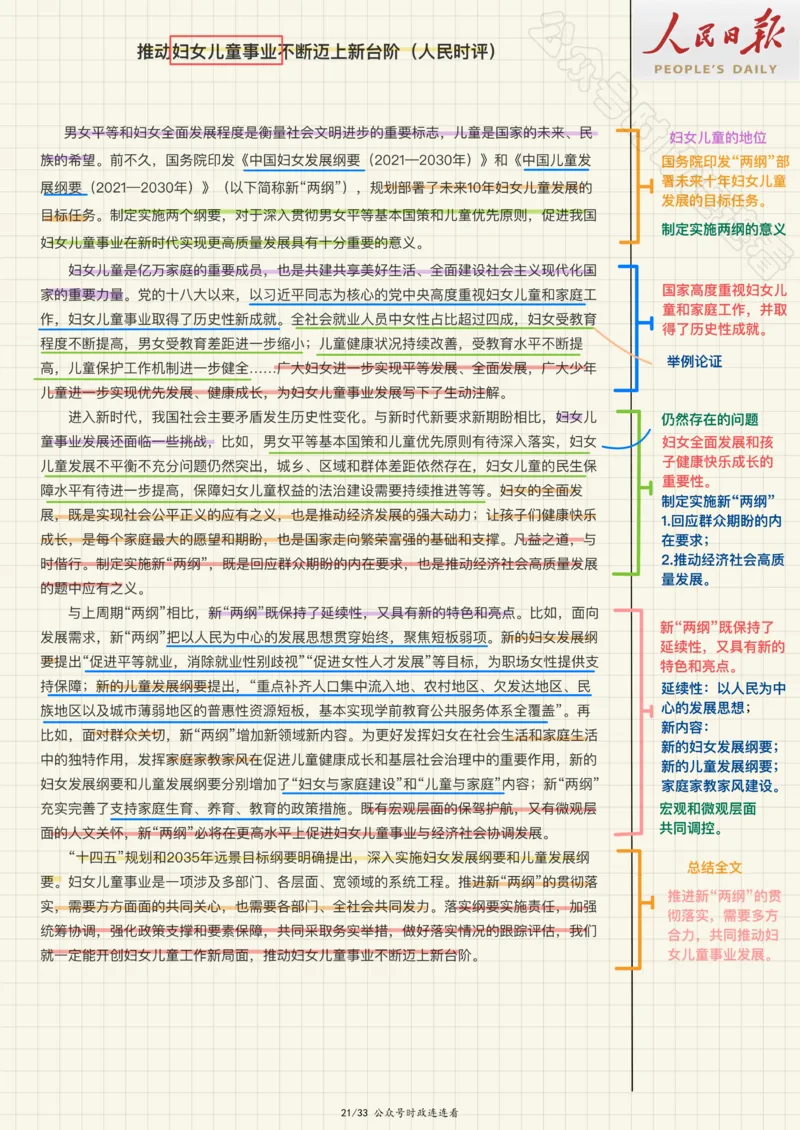 推动妇女儿童事业不断迈上新台阶（人民时评）
人民日报
PEOPLE'S DAILY
男女平等和妇女全面发展程度是衡量社会文明进步的重要标志，儿童是国家的未来、民
族的希望。前不久，国务院印发《中国妇女发展纲要（2021—2030年）》和《中国儿童发
展纲要（2021—2030年）》（以下简称新“两纲”），规划部署了未来10年妇女儿童发展的
目标任务。制定实施两个纲要，对于深入贯彻男女平等基本国策和儿童优先原则，促进我国
妇女儿童事业在新时代实现更高质量发展具有十分重要的意义。
妇女儿童是亿万家庭的重要成员，也是共建共享美好生活、全面建设社会主义现代化国
家的重要力量。党的十八大以来，以习近平同志为核心的党中央高度重视妇女儿童和家庭工
作，妇女儿童事业取得了历史性新成就。全社会就业人员中女性占比超过四成，妇女受教育
程度不断提高，男女受教育差距进一步缩小；儿童健康状况持续改善，受教育水平不断提
高，儿童保护工作机制进一步健全……广大妇女进一步实现平等发展、全面发展，广大少年
儿童进一步实现优先发展、健康成长，为妇女儿童事业发展写下了生动注解。
进入新时代，我国社会主要矛盾发生历史性变化。与新时代新要求新期盼相比，妇女儿
童事业发展还面临一些挑战，比如，男女平等基本国策和儿童优先原则有待深入落实，妇女
儿童发展不平衡不充分问题仍然突出，城乡、区域和群体差距依然存在，妇女儿童的民生保
障水平有待进一步提高，保障妇女儿童权益的法治建设需要持续推进等等。妇女的全面发
展，既是实现社会公平正义的应有之义，也是推动经济发展的强大动力；让孩子们健康快乐
成长，是每个家庭最大的愿望和期盼，也是国家走向繁荣富强的基础和支撑。凡益之道，与
时偕行。制定实施新“两纲”，既是回应群众期盼的内在要求，也是推动经济社会高质量发展
的题中应有之义。
与上周期“两纲”相比，新“两纲”既保持了延续性，又具有新的特色和亮点。比如，面向
发展需求，新“两纲”把以人民为中心的发展思想贯穿始终，聚焦短板弱项。新的妇女发展纲
要提出“促进平等就业，消除就业性别歧视”“促进女性人才发展”等目标，为职场女性提供支
持保障；新的儿童发展纲要提出，“重点补齐人口集中流入地、农村地区、欠发达地区、民
族地区以及城市薄弱地区的普惠性资源短板，基本实现学前教育公共服务体系全覆盖”。再
比如，面对群众关切，新“两纲”增加新领域新内容。为更好发挥妇女在社会生活和家庭生活
中的独特作用，发挥家庭家教家风在促进儿童健康成长和基层社会治理中的重要作用，新的
妇女发展纲要和儿童发展纲要分别增加了“妇女与家庭建设”和“儿童与家庭”内容；新“两纲”
充实完善了支持家庭生育、养育、教育的政策措施。既有宏观层面的保驾护航，又有微观层
面的人文关怀，新“两纲”必将在更高水平上促进妇女儿童事业与经济社会协调发展。
“十四五”规划和2035年远景目标纲要明确提出，深入实施妇女发展纲要和儿童发展纲
要。妇女儿童事业是一项涉及多部门、各层面、宽领域的系统工程。推进新“两纲”的贯彻落
实，需要方方面面的共同关心，也需要各部门、全社会共同发力。落实纲要实施责任，加强
统筹协调，强化政策支撑和要素保障，共同采取务实举措，做好落实情况的跟踪评估，我们
就一定能开创妇女儿童工作新局面，推动妇女儿童事业不断迈上新台阶。
妇女儿童的地位
国务院印发“两纲”部
署未来十年妇女儿童
发展的目标任务。
制定实施两纲的意义
国家高度重视妇女儿
童和家庭工作，并取
得了历史性成就。
举例论证
仍然存在的问题
妇女全面发展和孩
子健康快乐成长的
重要性。
制定实施新“两纲”
1.回应群众期盼的内
在要求；
2.推动经济社会高质
量发展。
新“两纲”既保持了
延续性，又具有新的
特色和亮点。
延续性：以人民为中
心的发展思想；
新内容：
新的妇女发展纲要；
新的儿童发展纲要；
家庭家教家风建设。
宏观和微观层面
共同调控。
总结全文
推进新“两纲”的贯
彻落实，需要多方
合力，共同推动妇
女儿童事业发展。
21/33 公众号时政连连看